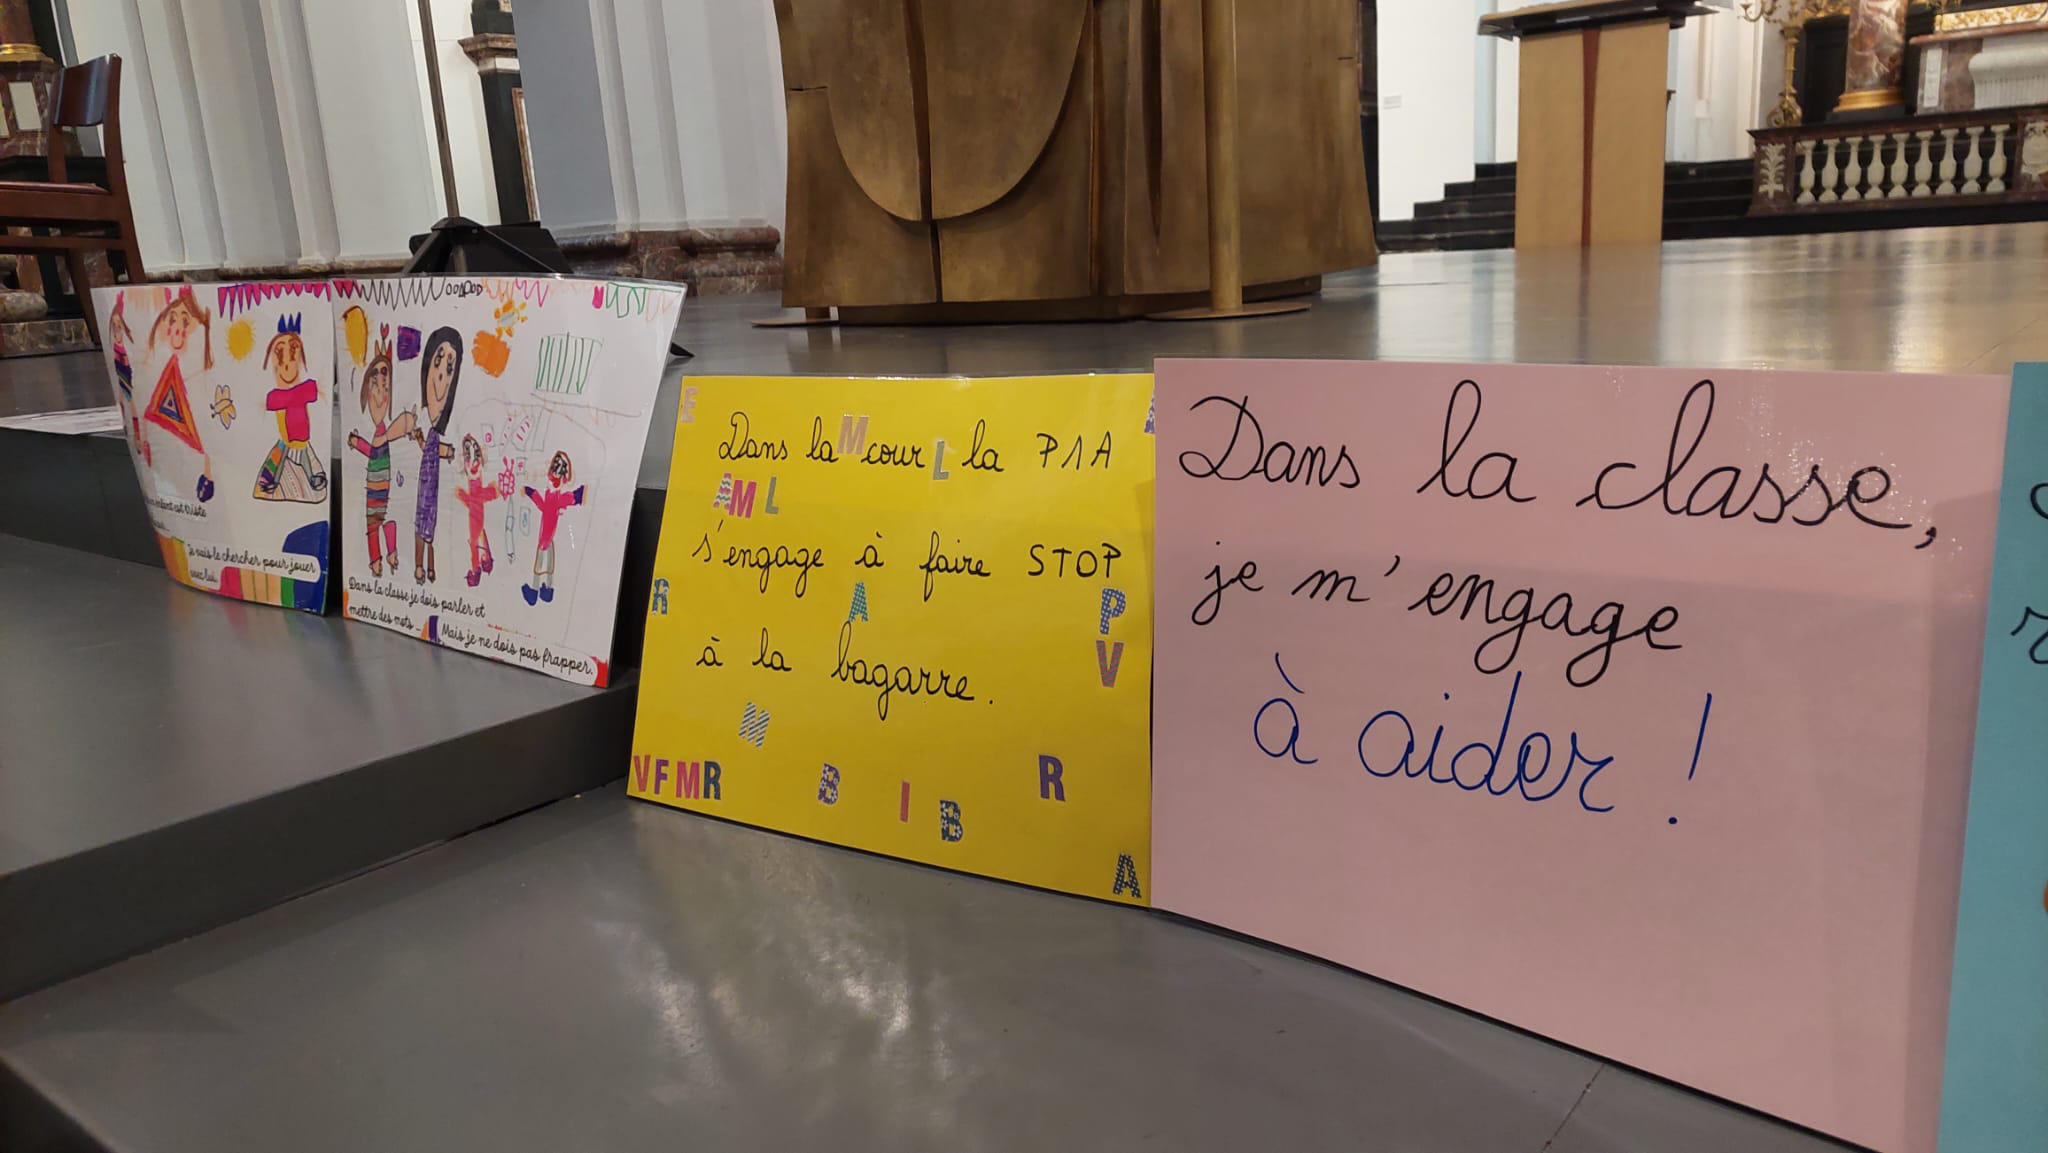 enfant est triste
Je vais le chercher pour jouer
avec lui.
Dans la classe je dois parler et
mettre des mots...
Mais je ne dois pas frapper.
E
Dans la M cour L la P1A
A M L
s'engage à faire STOP
R A P
à la bagarre.
V
M
V F M R B I B R
A
Dans la classe,
je m'engage
à aider !